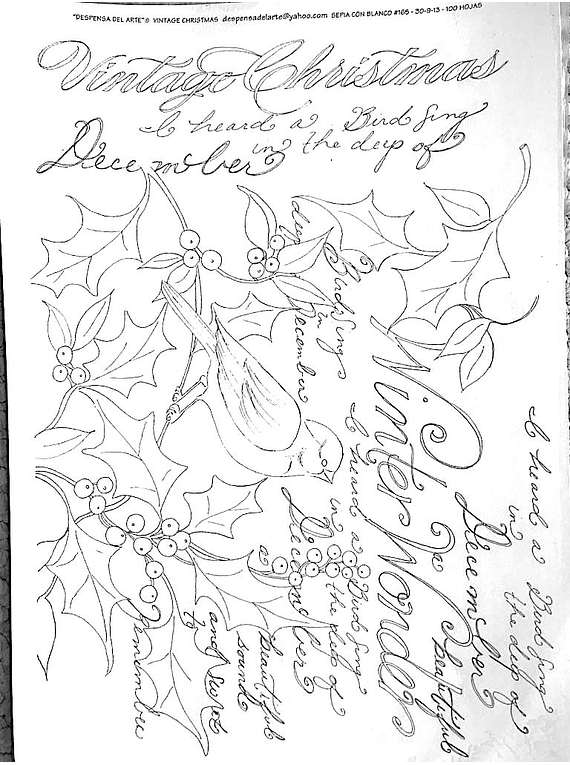 "DESPENSA DEL ARTE"® VINTAGE CHRISTMAS despensadelarte@yahoo.com SEPIA CON BLANCO #165 - 30-9-13 - 100 HOJAS
Vintage Christmas
I heard a Bird Sing
in the deep of
December
deep
in
December
Birds Sings
Winter Wonders
I heard a Bird Sing
in the deep of
December
a
beautiful
sound
and Sweet
to
remember
I heard a Bird Sing
in the deep of
December
beautiful